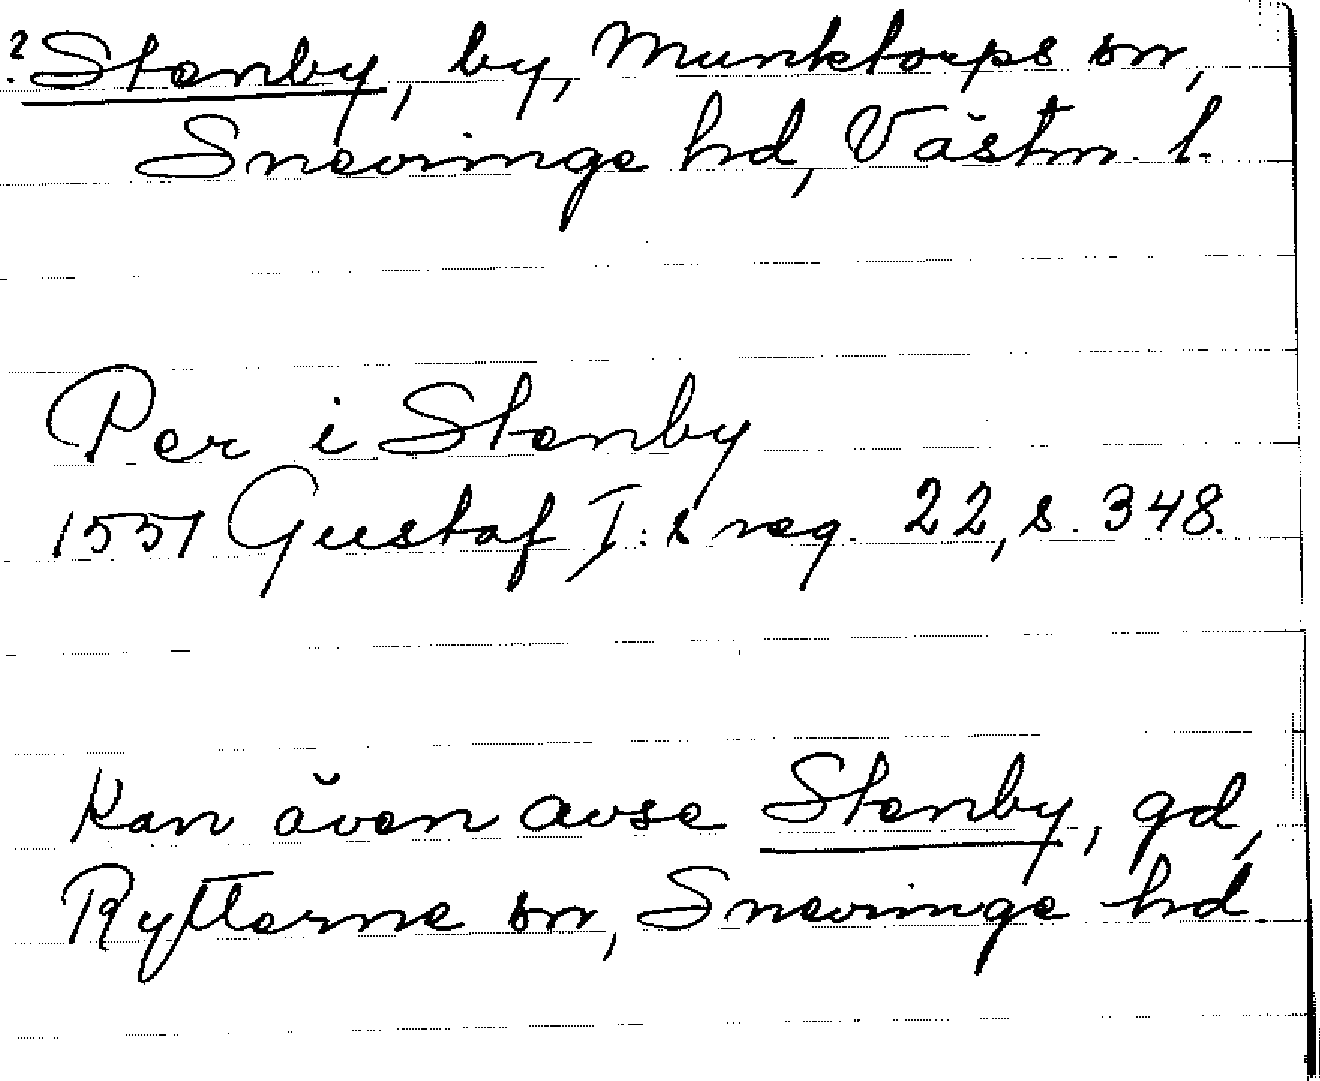 ? Stenby, by, Munktorps sn,
Snevringe hd, Västm. l.
Per i Stenby
1551 Gustaf I:s reg. 22, s. 348.
Kan även avse Stenby, gd,
Rytterne sn, Snevringe hd.